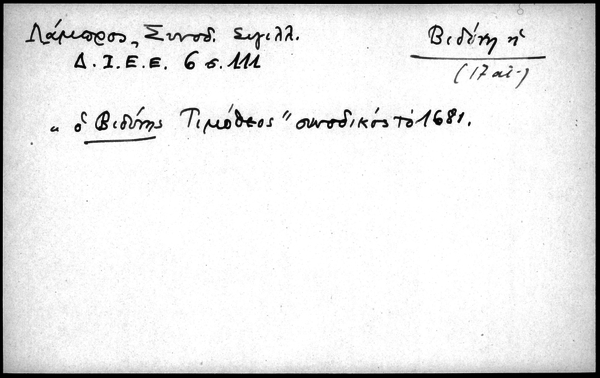 Λάμπρος, Συνοδ. Σιγιλλ.
Δ. Ι. Ε. Ε. 6 σ. 111
Βιδύνη ἡ
(17 αἰ.)
"ὁ Βιδύνης Τιμόθεος" συνοδικός τὸ 1681.